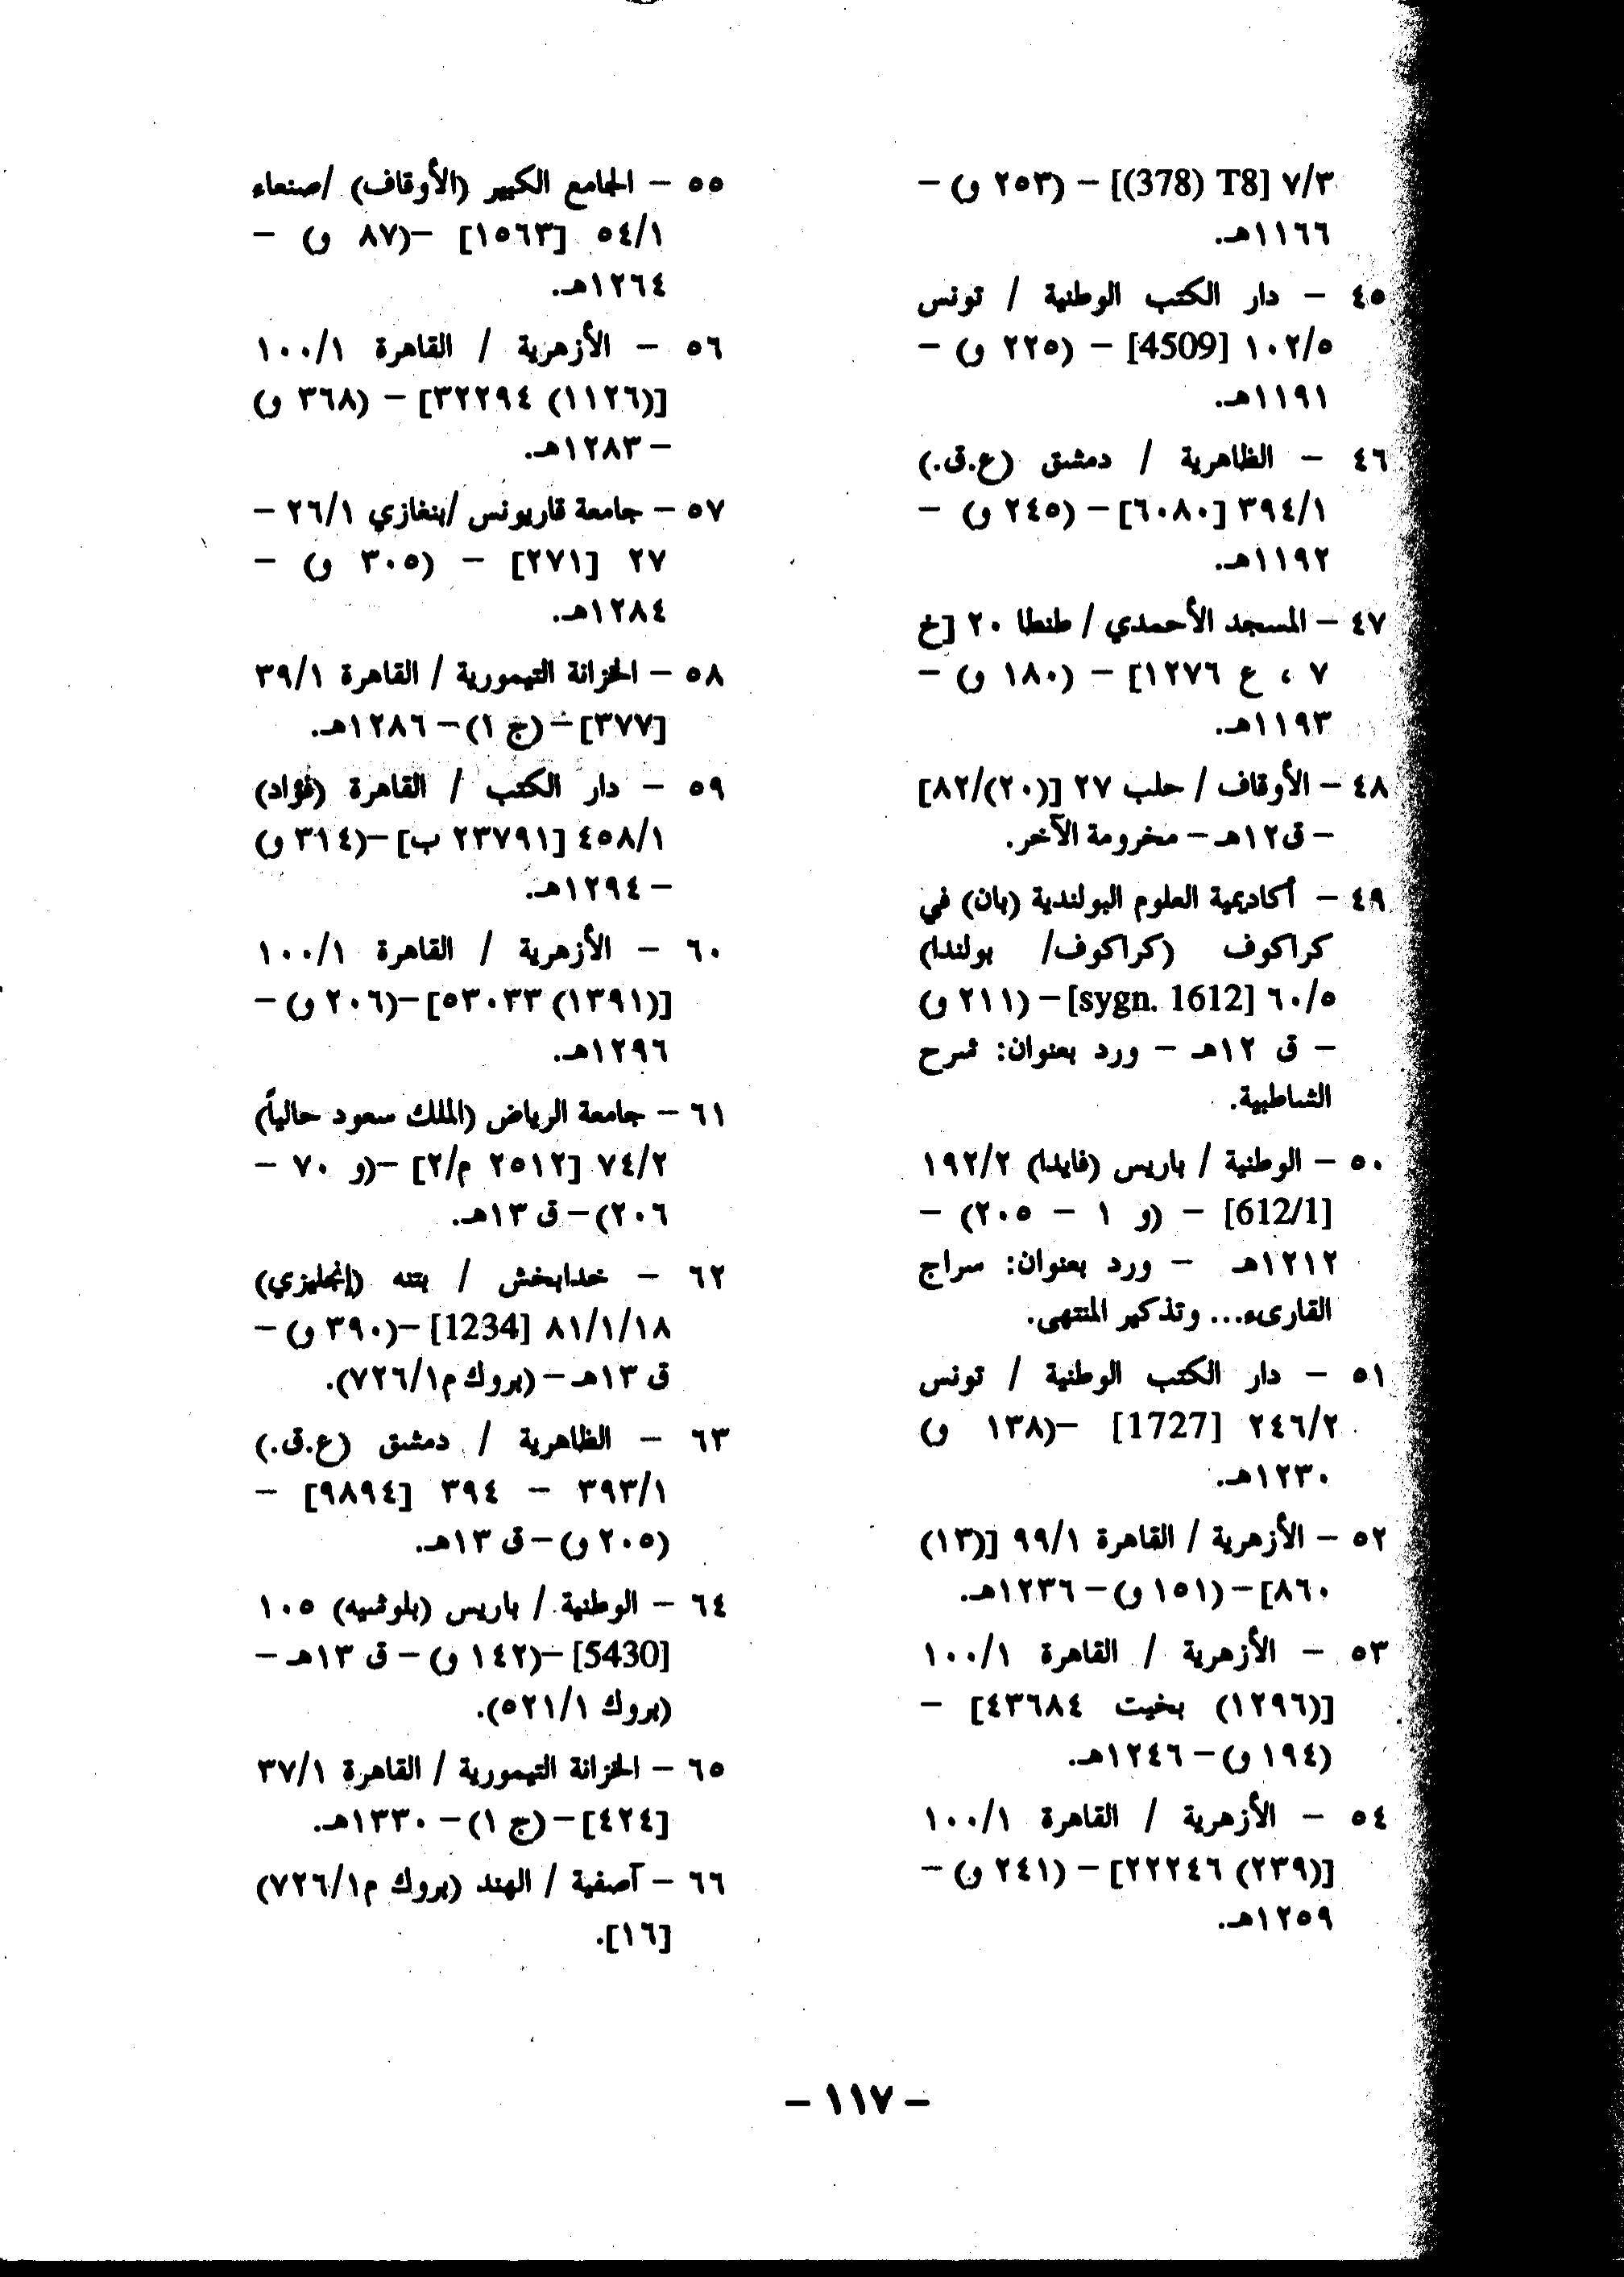 ٧/٣ [(378) T8] – (٢٥٣ و) –
١١٦٦هـ.
٤٥ – دار الكتب الوطنية / تونس
١٠٢/٥ [4509] – (٢٢٥ و) –
١١٩١هـ.
٤٦ – الظاهرية / دمشق (ع.ق.)
٣٩٤/١ [٦٠٨٠] – (٢٤٥ و) –
١١٩٢هـ.
٤٧ – المسجد الأحمدي / طنطا ٢٠ [خ
٧ ، ع ١٢٧٦] – (١٨٠ و) –
١١٩٣هـ.
٤٨ – الأوقاف / حلب ٢٧ [(٢٠)/٨٢]
– ق١٢هـ – مخرومة الآخر.
٤٩ – أكاديمية العلوم البولندية (بان) في
كراكوف (كراكوف/ بولندا)
٦٠/٥ [sygn. 1612] – (٢١١ و)
– ق ١٢هـ – ورد بعنوان: شرح
الشاطبية.
٥٠ – الوطنية / باريس (فايدا) ١٩٢/٢
[612/1] – (و ١ – ٢٠٥) –
١٢١٢هـ – ورد بعنوان: سراج
القارىء... وتذكير المنتهى.
٥١ – دار الكتب الوطنية / تونس
٢٤٦/٢ [1727] –(١٣٨ و)
١٢٣٠هـ.
٥٢ – الأزهرية / القاهرة ٩٩/١ [(١٣)
٨٦٠] – (١٥١ و) – ١٢٣٦هـ.
٥٣ – الأزهرية / القاهرة ١٠٠/١
[(١٢٩٦) بخيت ٤٣٦٨٤] –
(١٩٤ و) – ١٢٤٦هـ.
٥٤ – الأزهرية / القاهرة ١٠٠/١
[(٢٣٩) ٢٢٢٤٦] – (٢٤١ و) –
١٢٥٩هـ.
٥٥ – الجامع الكبير (الأوقاف) /صنعاء
٥٤/١ [١٥٦٣] –(٨٧ و) –
١٢٦٤هـ.
٥٦ – الأزهرية / القاهرة ١٠٠/١
[(١١٢٦) ٣٢٢٩٤] – (٣٦٨ و)
– ١٢٨٣هـ.
٥٧ – جامعة قاريونس /بنغازي ٢٦/١ –
٢٧ [٢٧١] – (٣٠٥ و) –
١٢٨٤هـ.
٥٨ – الخزانة التيمورية / القاهرة ٣٩/١
[٣٧٧] – (ج ١) – ١٢٨٦هـ.
٥٩ – دار الكتب / القاهرة (فؤاد)
٤٥٨/١ [٢٣٧٩١ ب] –(٣١٤ و)
– ١٢٩٤هـ.
٦٠ – الأزهرية / القاهرة ١٠٠/١
[(١٣٩١) ٥٣٠٣٣] –(٢٠٦ و) –
١٢٩٦هـ.
٦١ – جامعة الرياض (الملك سعود حالياً)
٧٤/٢ [٢٥١٢ م/٢] –(و ٧٠ –
٢٠٦) – ق ١٣هـ.
٦٢ – خدابخش / بتنه (إنجليزي)
٨١/١/١٨ [1234] –(٣٩٠ و) –
ق ١٣هـ – (بروك م٧٢٦/١).
٦٣ – الظاهرية / دمشق (ع.ق.)
٣٩٣/١ – ٣٩٤ [٩٨٩٤] –
(٢٠٥ و) – ق ١٣هـ.
٦٤ – الوطنية / باريس (بلوشيه) ١٠٥
[5430] –(١٤٢ و) – ق ١٣هـ –
(بروك ٥٢١/١).
٦٥ – الخزانة التيمورية / القاهرة ٣٧/١
[٤٢٤] – (ج ١) – ١٣٣٠هـ.
٦٦ – آصفية / الهند (بروك م٧٢٦/١)
[١٦].
– ١١٧ –